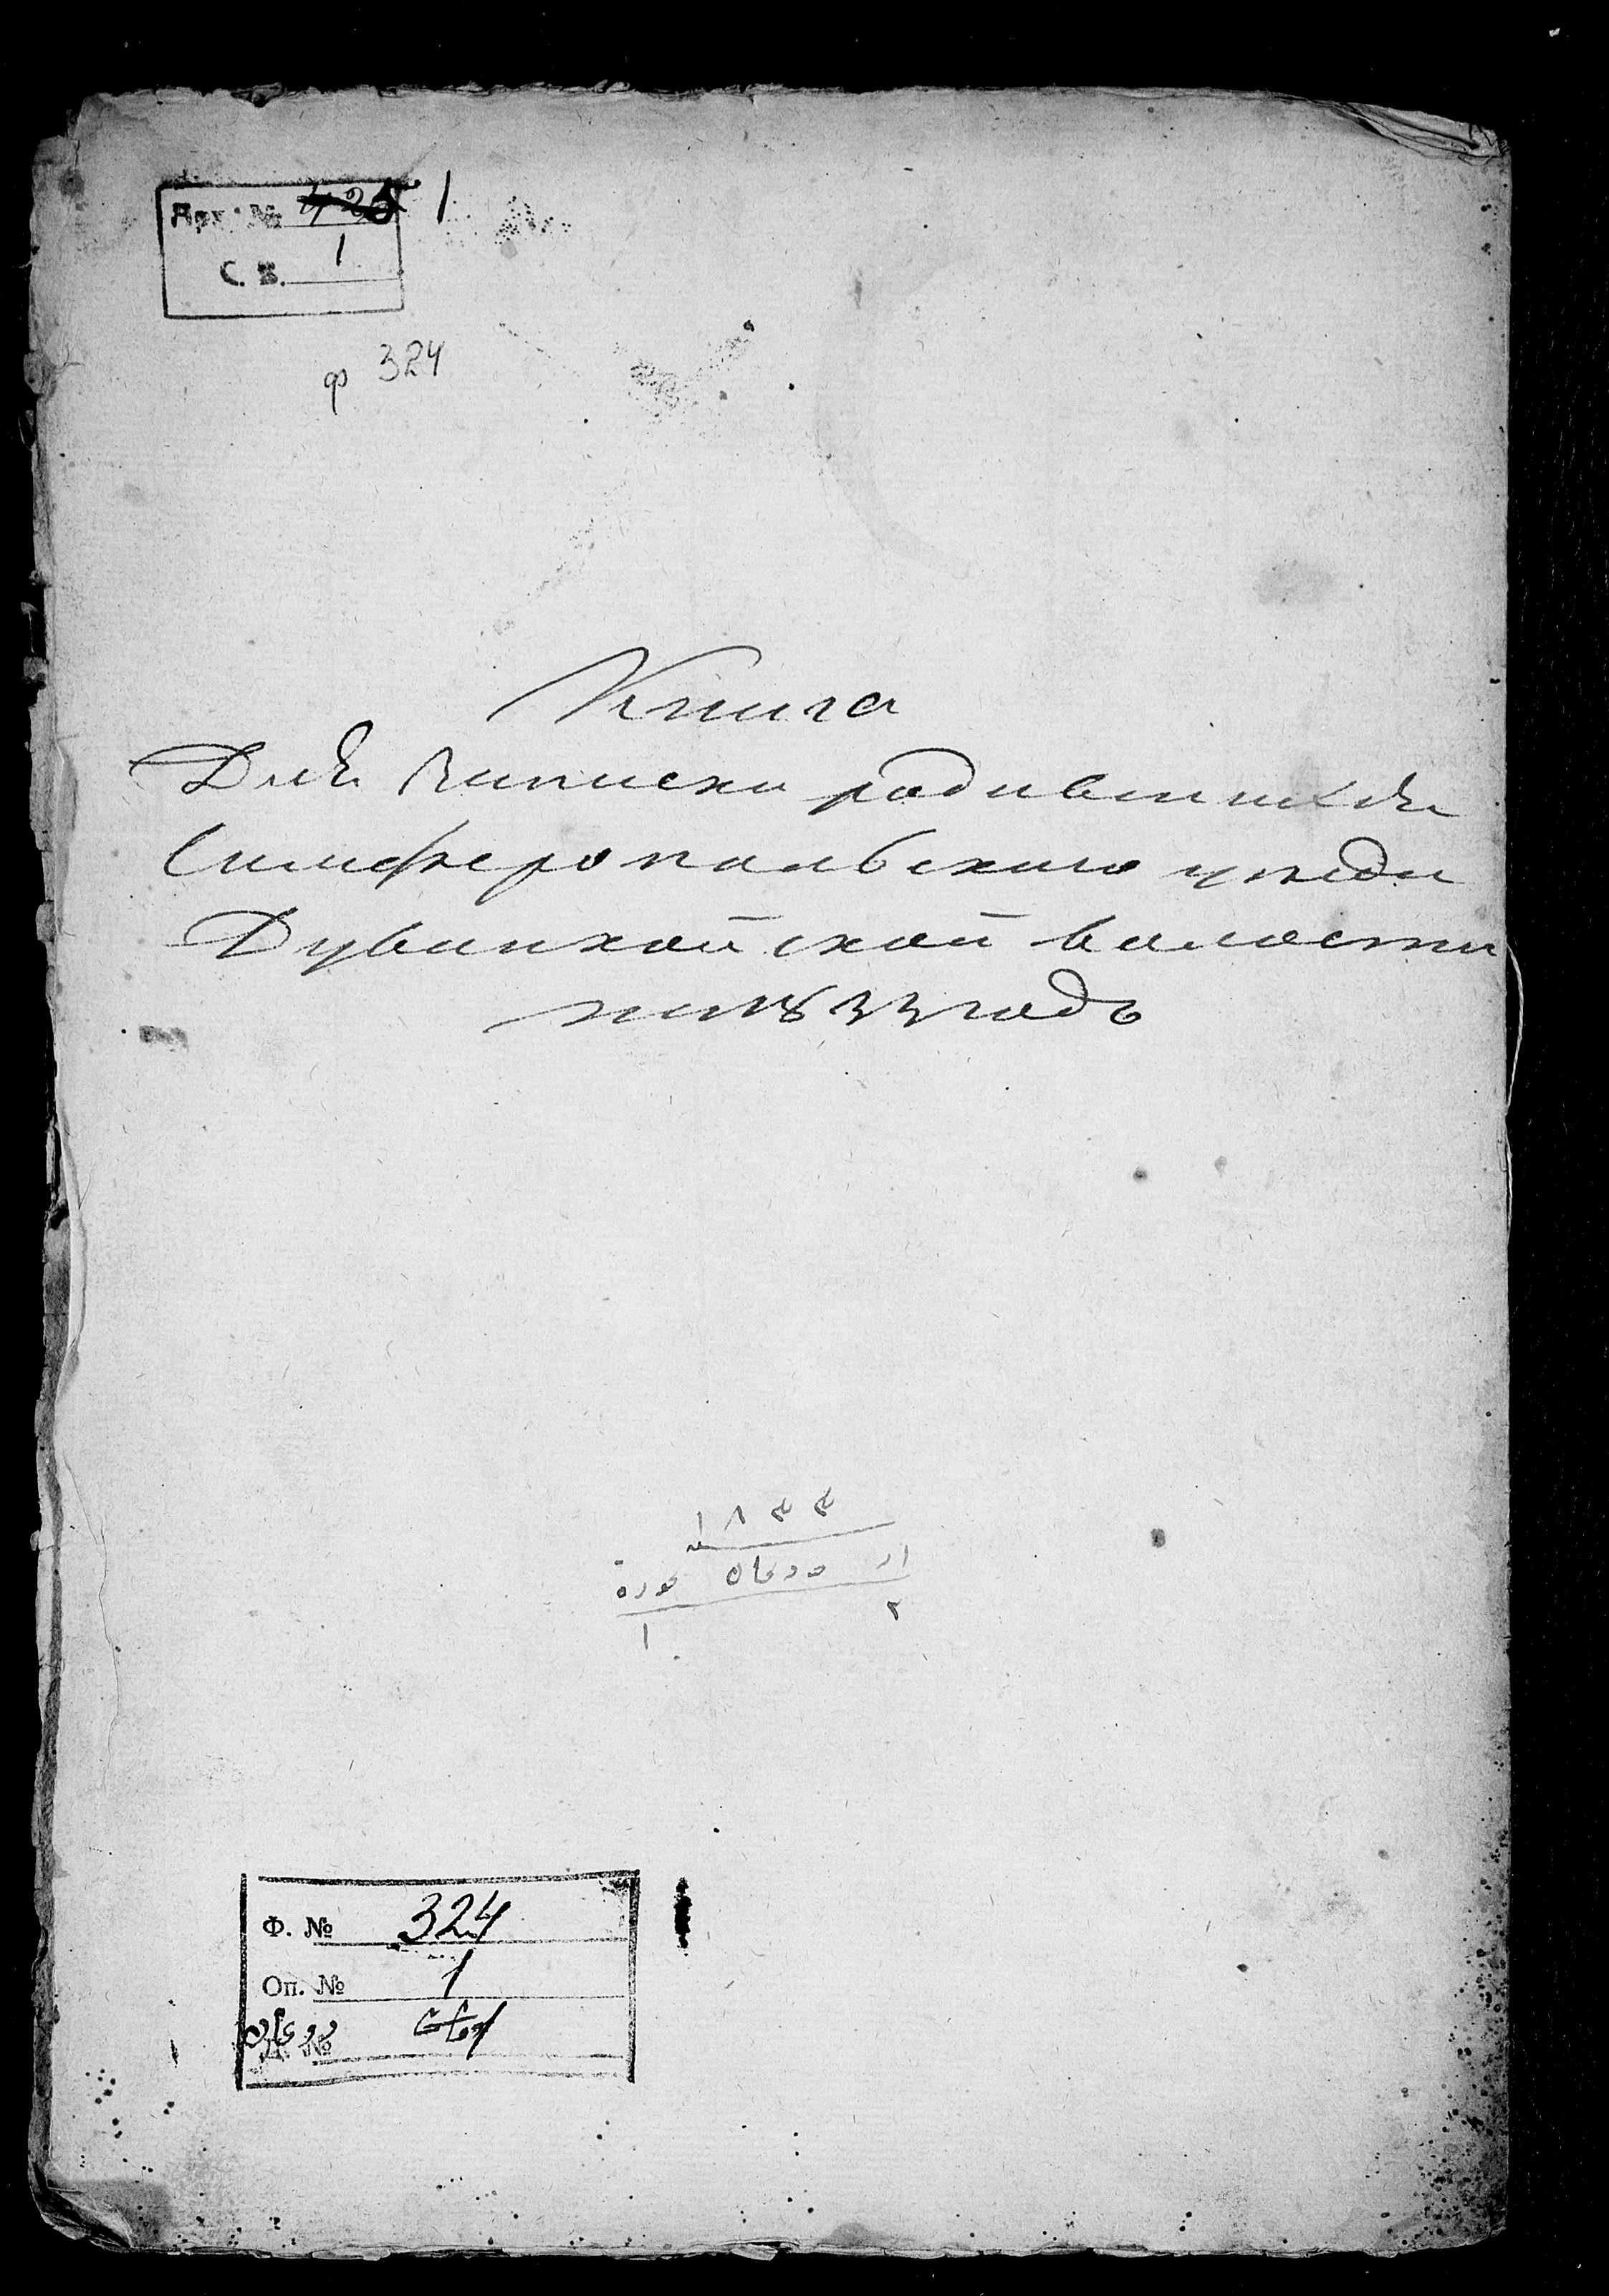 Арх. № 425 1
С. в. 1
ф 324
Книга
Для Записки родившихся
Симферопальскаго уезда
Дуванкойской валости
на 1833 годъ
١٨٣٣
سنه
٢
١
Ф. № 324
Оп. № 1
Д. №